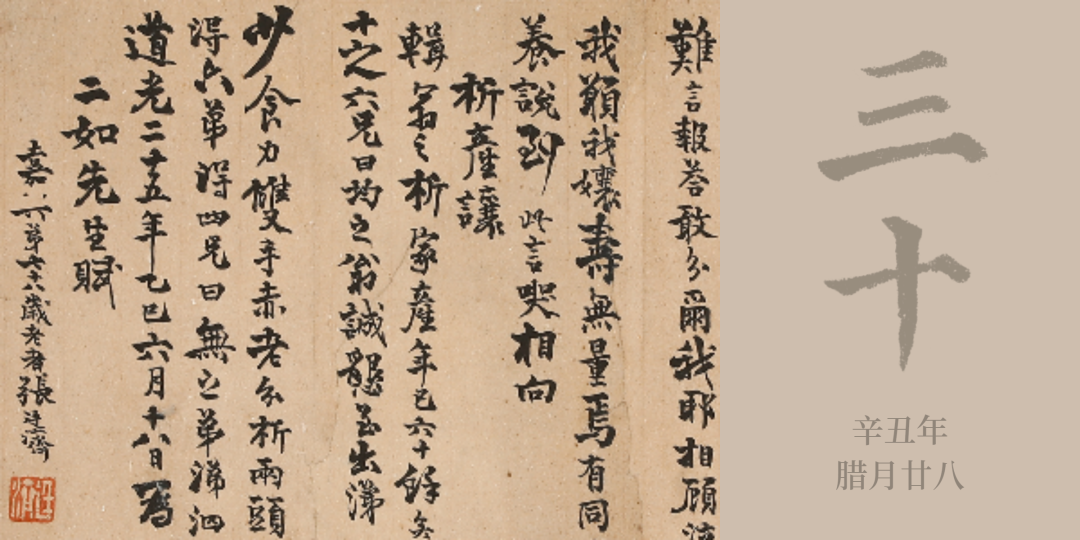 難言報答敢分爾我耶相顧流
我願我孃壽無量焉有同
養說到此言哭相向
析産讓
輯翁之析家産年已六十餘矣
十之六兄曰均之翁誠懇至出涕
少食力雙手赤老分析兩頭
得六弟得四兄曰無之弟涕泗
道光二十五年乙巳六月十八日為
二如先生賦
嘉 六弟七十八歲老者張廷濟
三十
辛丑年
腊月廿八